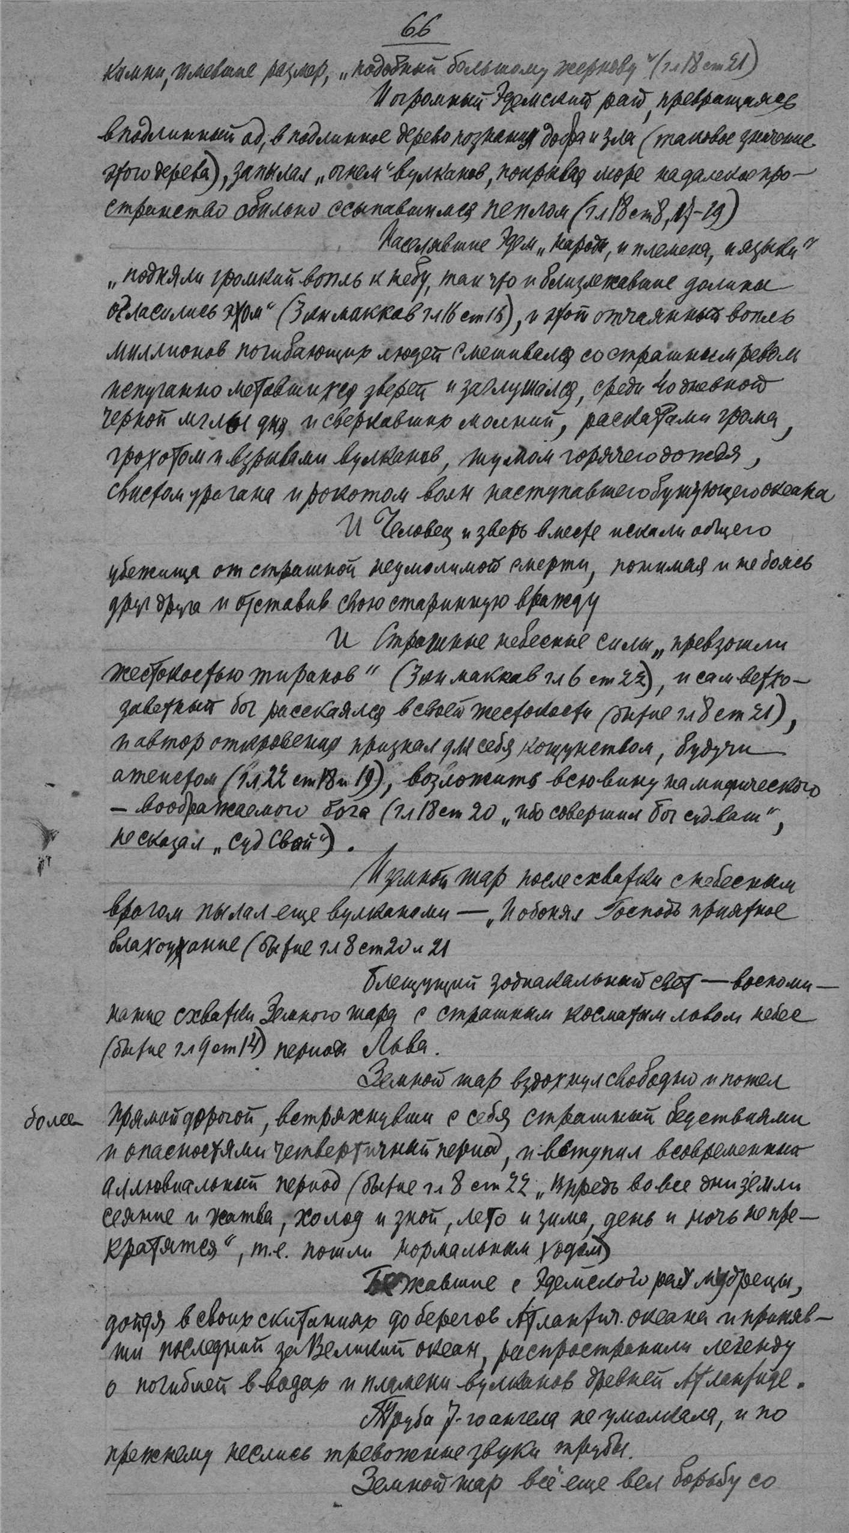 66
камни, имевшие размер, „подобный большому жернову“ (гл 18 ст 21)
И огромный Эдемский рай, превращаясь
в подлинный ад, в подлинное дерево познания добра и зла (таковое значение
этого дерева), запылал „огнем“ вулканов, покрывая море на далекое про-
странство обильно ссыпавшимся пеплом (гл 18 ст 8, 17-19)
Населявшие Эдем „народы, и племена, и языки“
„подняли громкий вопль к небу, так что и близлежавшие долины
огласились эхом“ (3 кн маккав гл 6 ст 15), и этот отчаянный вопль
миллионов погибающих людей смешивался со страшным ревом
испуганно метавшихся зверей и заглушался, среди 40 дневной
черной мглы дня и сверкавших молний, раскатами грома,
грохотом и взрывами вулканов, шумом горячего дождя,
свистом урагана и рокотом волн наступавшего бушующего океана
И Человек и зверь вместе искали общего
убежища от страшной неумолимой смерти, понимая и не боясь
друг друга и отставив свою старинную вражду
И Страшные небесные силы „превзошли
жестокостью тиранов“ (3 кн маккав гл 6 ст 22), и сам ветхо-
заветный бог расскаялся в своей жестокости (бытие гл 8 ст 21),
и автор откровения признал для себя кощунством, будучи
атеистом (гл 22 ст 18 и 19), возложить всю вину на мифического
- воображаемого бога (гл 18 ст 20 „ибо совершил бог суд ваш“,
не сказал „суд Свой“).
И земной шар после схватки с небесным
врагом пылал еще вулканами — „И обонял Господь приятное
благоухание (бытие гл 8 ст 20 и 21
Блещущий зодиакальный свет — воспоми-
нание схватки Земного шара с страшным косматым львом небес
(бытие гл 9 ст 14) периода Льва.
Земной шар вздохнул свободно и пошел
более прямой дорогой, встряхнувши с себя страшный бедствиями
и опасностями четвертичный период, и вступил в современный
аллювиальный период (бытие гл 8 ст 22 „впредь во все дни земли
сеяние и жатва, холод и зной, лето и зима, день и ночь не пре-
кратятся“, т.е. пошли нормальным ходом)
Бежавшие с Эдемского рая мудрецы,
дойдя в своих скитаниях до берегов Атлантич. океана и приняв-
ши последний за Великий океан, распространили легенду
о погибшей в водах и пламени вулканов древней Атлантиде.
Труба 7-го ангела не умолкала, и по
прежнему неслись тревожные звуки трубы.
Земной шар всё еще вел борьбу со